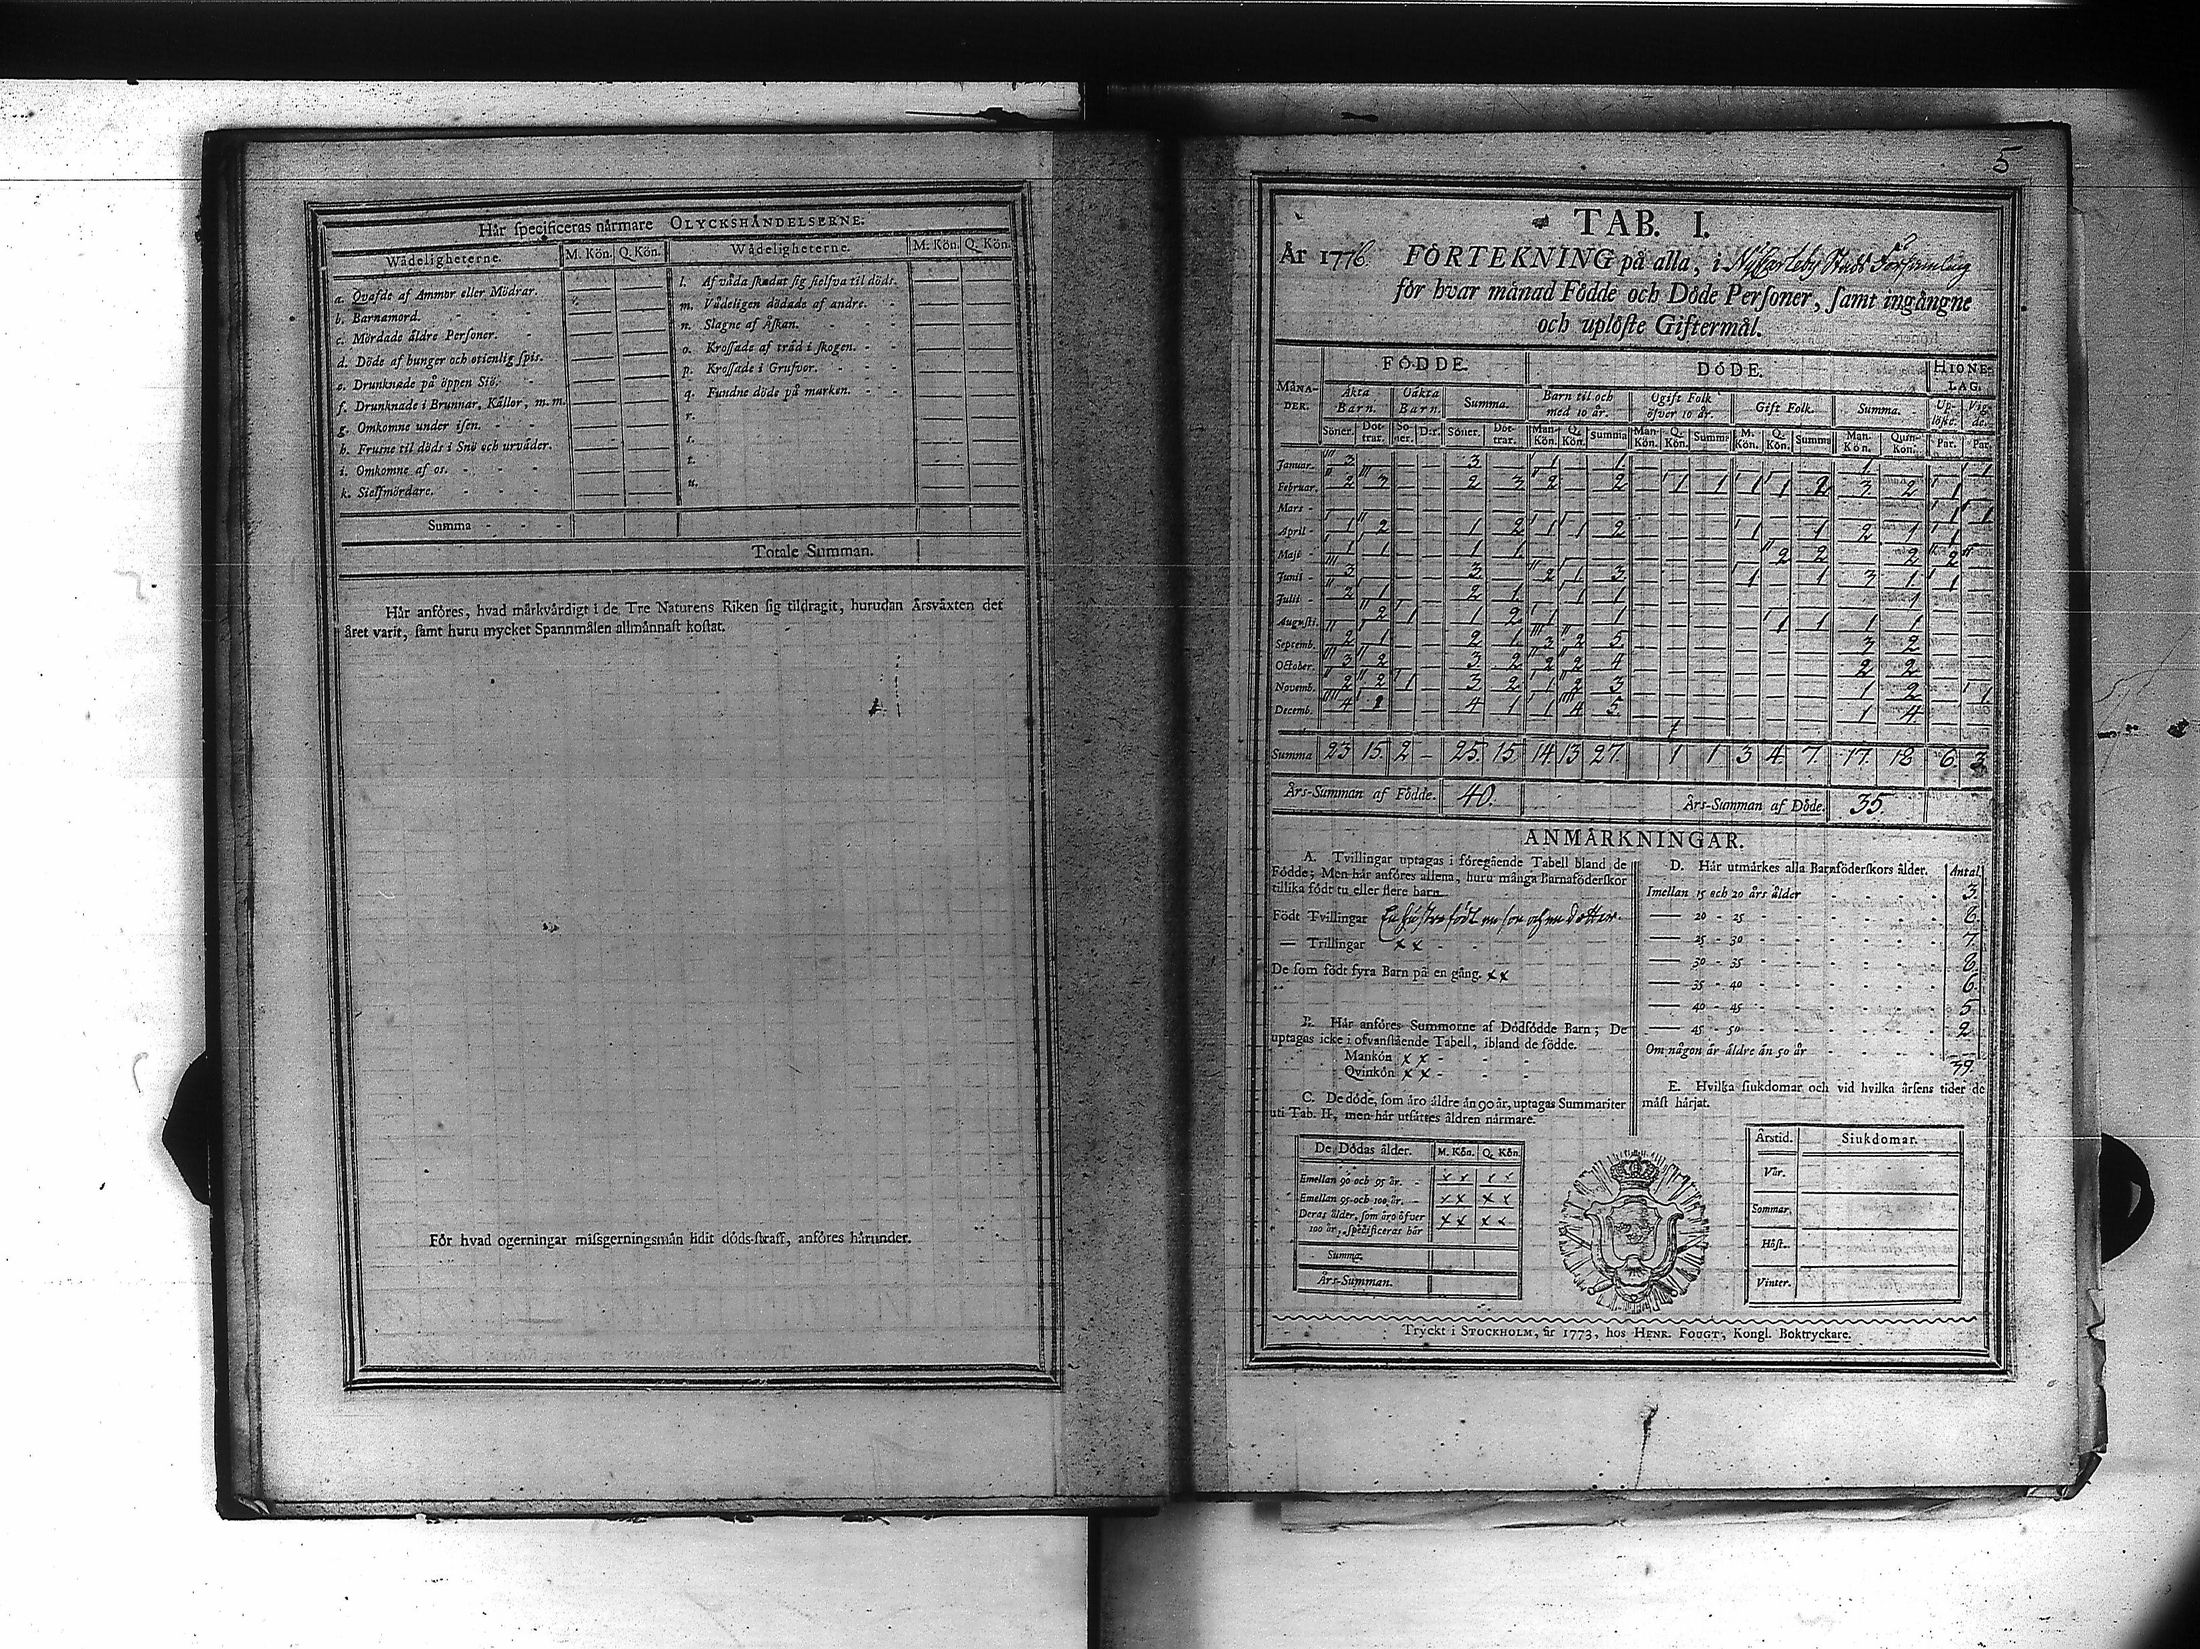 Hår specificeras nårmare OLYCKSHÅNDELSERNE:
Wådeligheterne. M. Kön. Q. Kön. Wådeligheterne. M. Kön. Q. Kön.
a. Qvafde af Ammor eller Mödrar. — — l. Af våda skadat sig sielfva til döds. — —
b. Barnamord. — — m. Vådeligen dödade af andre. — —
c. Mördade åldre Personer. — — n. Slagne af Åskan. — —
d. Döde af hunger och otienlig spis. — — o. Krossade af tråd i skogen. — —
e. Drunknade på öppen Siö. — — p. Krossade i Grufvor. — —
f. Drunknade i Brunnar, Kållor, m.m. — — q. Fundne döde på marken. — —
g. Omkomne under isen. — — r. — —
h. Frusne til döds i Snö och urvåder. — — s. — —
i. Omkomne af os. — — t. — —
k. Sielfmördare. — — u. — —
Summa
Totale Summan.
Hår anföres, hvad mårkvårdigt i de Tre Naturens Riken sig tildragit, hurudan Årsvåxten det
året varit, samt huru mycket Spannmålen allmånnast kostat.
För hvad ogerningar missgerningsmån lidit döds-straff, anföres hårunder.
5
TAB. I.
År 1776. FÖRTEKNING på alla, i NyCarleby Stads Församling
för hvar månad Födde och Döde Personer, samt ingångne
och uplöste Giftermål.
MÅNADER. FÖDDE. DÖDE. HIONELAG.
Åkta Barn. Oåkta Barn. Summa. Barn til och med 10 år. Ogift Folk öfver 10 år. Gift Folk. Summa. Uplöste. Vigde.
Söner. Döttrar. Söner. D:r. Söner. Döttrar. Man-Kön. Q. Kön. Summa Man-Kön. Q. Kön. Summa M. Kön. Q. Kön. Summa Man-Kön. Quin-Kön. Par. Par.
Januar. 3 — — — 3 — 1 — 1 — — — — — — 1 — — 1
Februar. 2 3 — — 2 3 2 — 2 — 1 1 1 1 2 3 2 1 —
Mars - — — — — — — — — — — — — — — — — — 1 1
April - 1 2 — — 1 2 1 1 2 — — — 1 — 1 2 1 1 —
Maji - 1 1 — — 1 1 — — — — — — — 2 2 — 2 2
Junii - 3 — — — 3 — 2 1 3 — — — 1 — 1 3 1 1 —
Julii - 2 1 — — 2 1 — 1 1 — — — — — — — 1 — —
Augusti. — 2 1 — 1 2 1 — 1 — — — — 1 1 1 1 — —
Septemb. 2 1 — — 2 1 3 2 5 — — — — — — 3 2 — —
October. 3 2 — — 3 2 2 2 4 — — — — — — 2 2 — —
Novemb. 2 2 1 — 3 2 1 2 3 — — — — — — 1 2 — 1
Decemb. 4 1 — — 4 1 1 4 5 — — — — — — 1 4 — —
Summa 23 15. 2 — 25. 15 14. 13 27. 1 1 3 4. 7. 17. 18 6. 3
Års-Summan af Födde. 40. Års-Summan af Döde. 35.
ANMÅRKNINGAR.
A. Tvillingar uptagas i föregående Tabell bland de
Födde; Men hår anföres allena, huru många Barnaföderskor
tillika födt tu eller flere barn.
Födt Tvillingar En hustru födt en son och en dotter.
— Trillingar x x
De som födt fyra Barn på en gång. x x
B. Hår anföres Summorne af Dödfödde Barn; De
uptagas icke i ofvanstående Tabell, ibland de födde.
Mankön x x
Qvinkön x x
C. De döde, som åro åldre ån 90 år, uptagas Summariter
uti Tab. II, men hår utsåttes åldren nårmare.
De Dödas ålder. M. Kön. Q. Kön.
Emellan 90 och 95 år. x x x x
Emellan 95 och 100 år. x x x x
Deras ålder, som åro öfver
100 år, specificeras hår x x x x
Summa.
Års-Summan.
D. Hår utmårkes alla Barnföderskors ålder. Antal
Imellan 15 och 20 års ålder 3.
— 20 - 25 8.
— 25 - 30 7.
— 30 - 35 8.
— 35 - 40 6.
— 40 - 45 5
— 45 - 50 2
Om någon år åldre ån 50 år —
39.
E. Hvilka siukdomar och vid hvilka årsens tider de
måst hårjat.
Årstid. Siukdomar.
Vår.
Sommar.
Höst.
Vinter.
Tryckt i STOCKHOLM, år 1773, hos HENR. FOUGT, Kongl. Boktryckare.